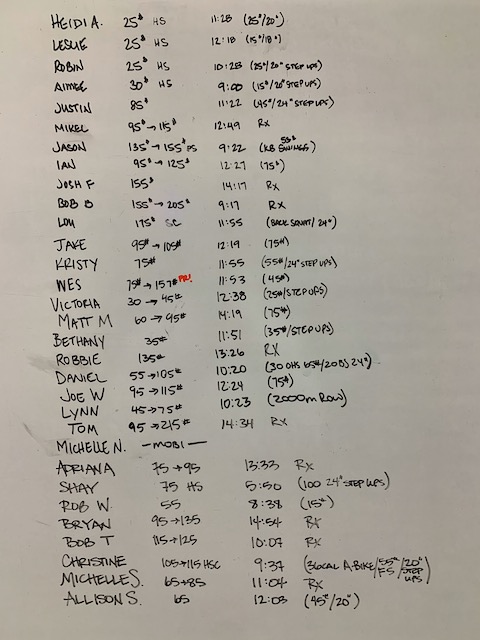 HEIDI A. 25# HS 11:28 (25#/20")
LESLIE 25# HS 12:18 (15#/18")
ROBIN 25# HS 10:28 (25#/20" STEP UPS)
AIMEE 30# HS 9:00 (15#/20" STEP UPS)
JUSTIN 85# 11:22 (45#/24" STEP UPS)
MIKEL 95# → 115# 12:49 Rx
JASON 135# → 155# PS 9:22 (KB 53# SWINGS)
IAN 95# → 125# 12:27 (75#)
JOSH F 155# 14:17 Rx
BOB B 155# → 205# 9:17 Rx
LOU 175# SC 11:55 (BACK SQUAT/24")
JAKE 95# → 105# 12:19 (75#)
KRISTY 75# 11:55 (55#/24" STEP UPS)
WES 75# → 157# PR! 11:53 (45#)
VICTORIA 30 → 45# 12:38 (25#/STEP UPS)
MATT M 60 → 95# 14:19 (75#)
BETHANY 35# 11:51 (35#/STEP UPS)
ROBBIE 135# 13:26 RX
DANIEL 55 → 105# 10:20 (30 OHS 65#/20 BJ 24")
JOE W 95 → 115# 12:24 (75#)
LYNN 45 → 75# 10:23 (2000m ROW)
TOM 95 → 215# 14:34 Rx
MICHELLE N. — MOBI —
ADRIANA 75 → 95 13:33 Rx
SHAY 75 HS 5:50 (100 24" STEP UPS)
ROB W. 55 8:38 (15#)
BRYAN 95 → 135 14:54 Rx
BOB T 115 → 125 10:07 Rx
CHRISTINE 105 → 115 HSC 9:37 (36 CAL A-BIKE/55# FS/20" STEP UPS)
MICHELLE S. 65 → 85 11:04 Rx
ALLISON S. 65 12:03 (45#/20")